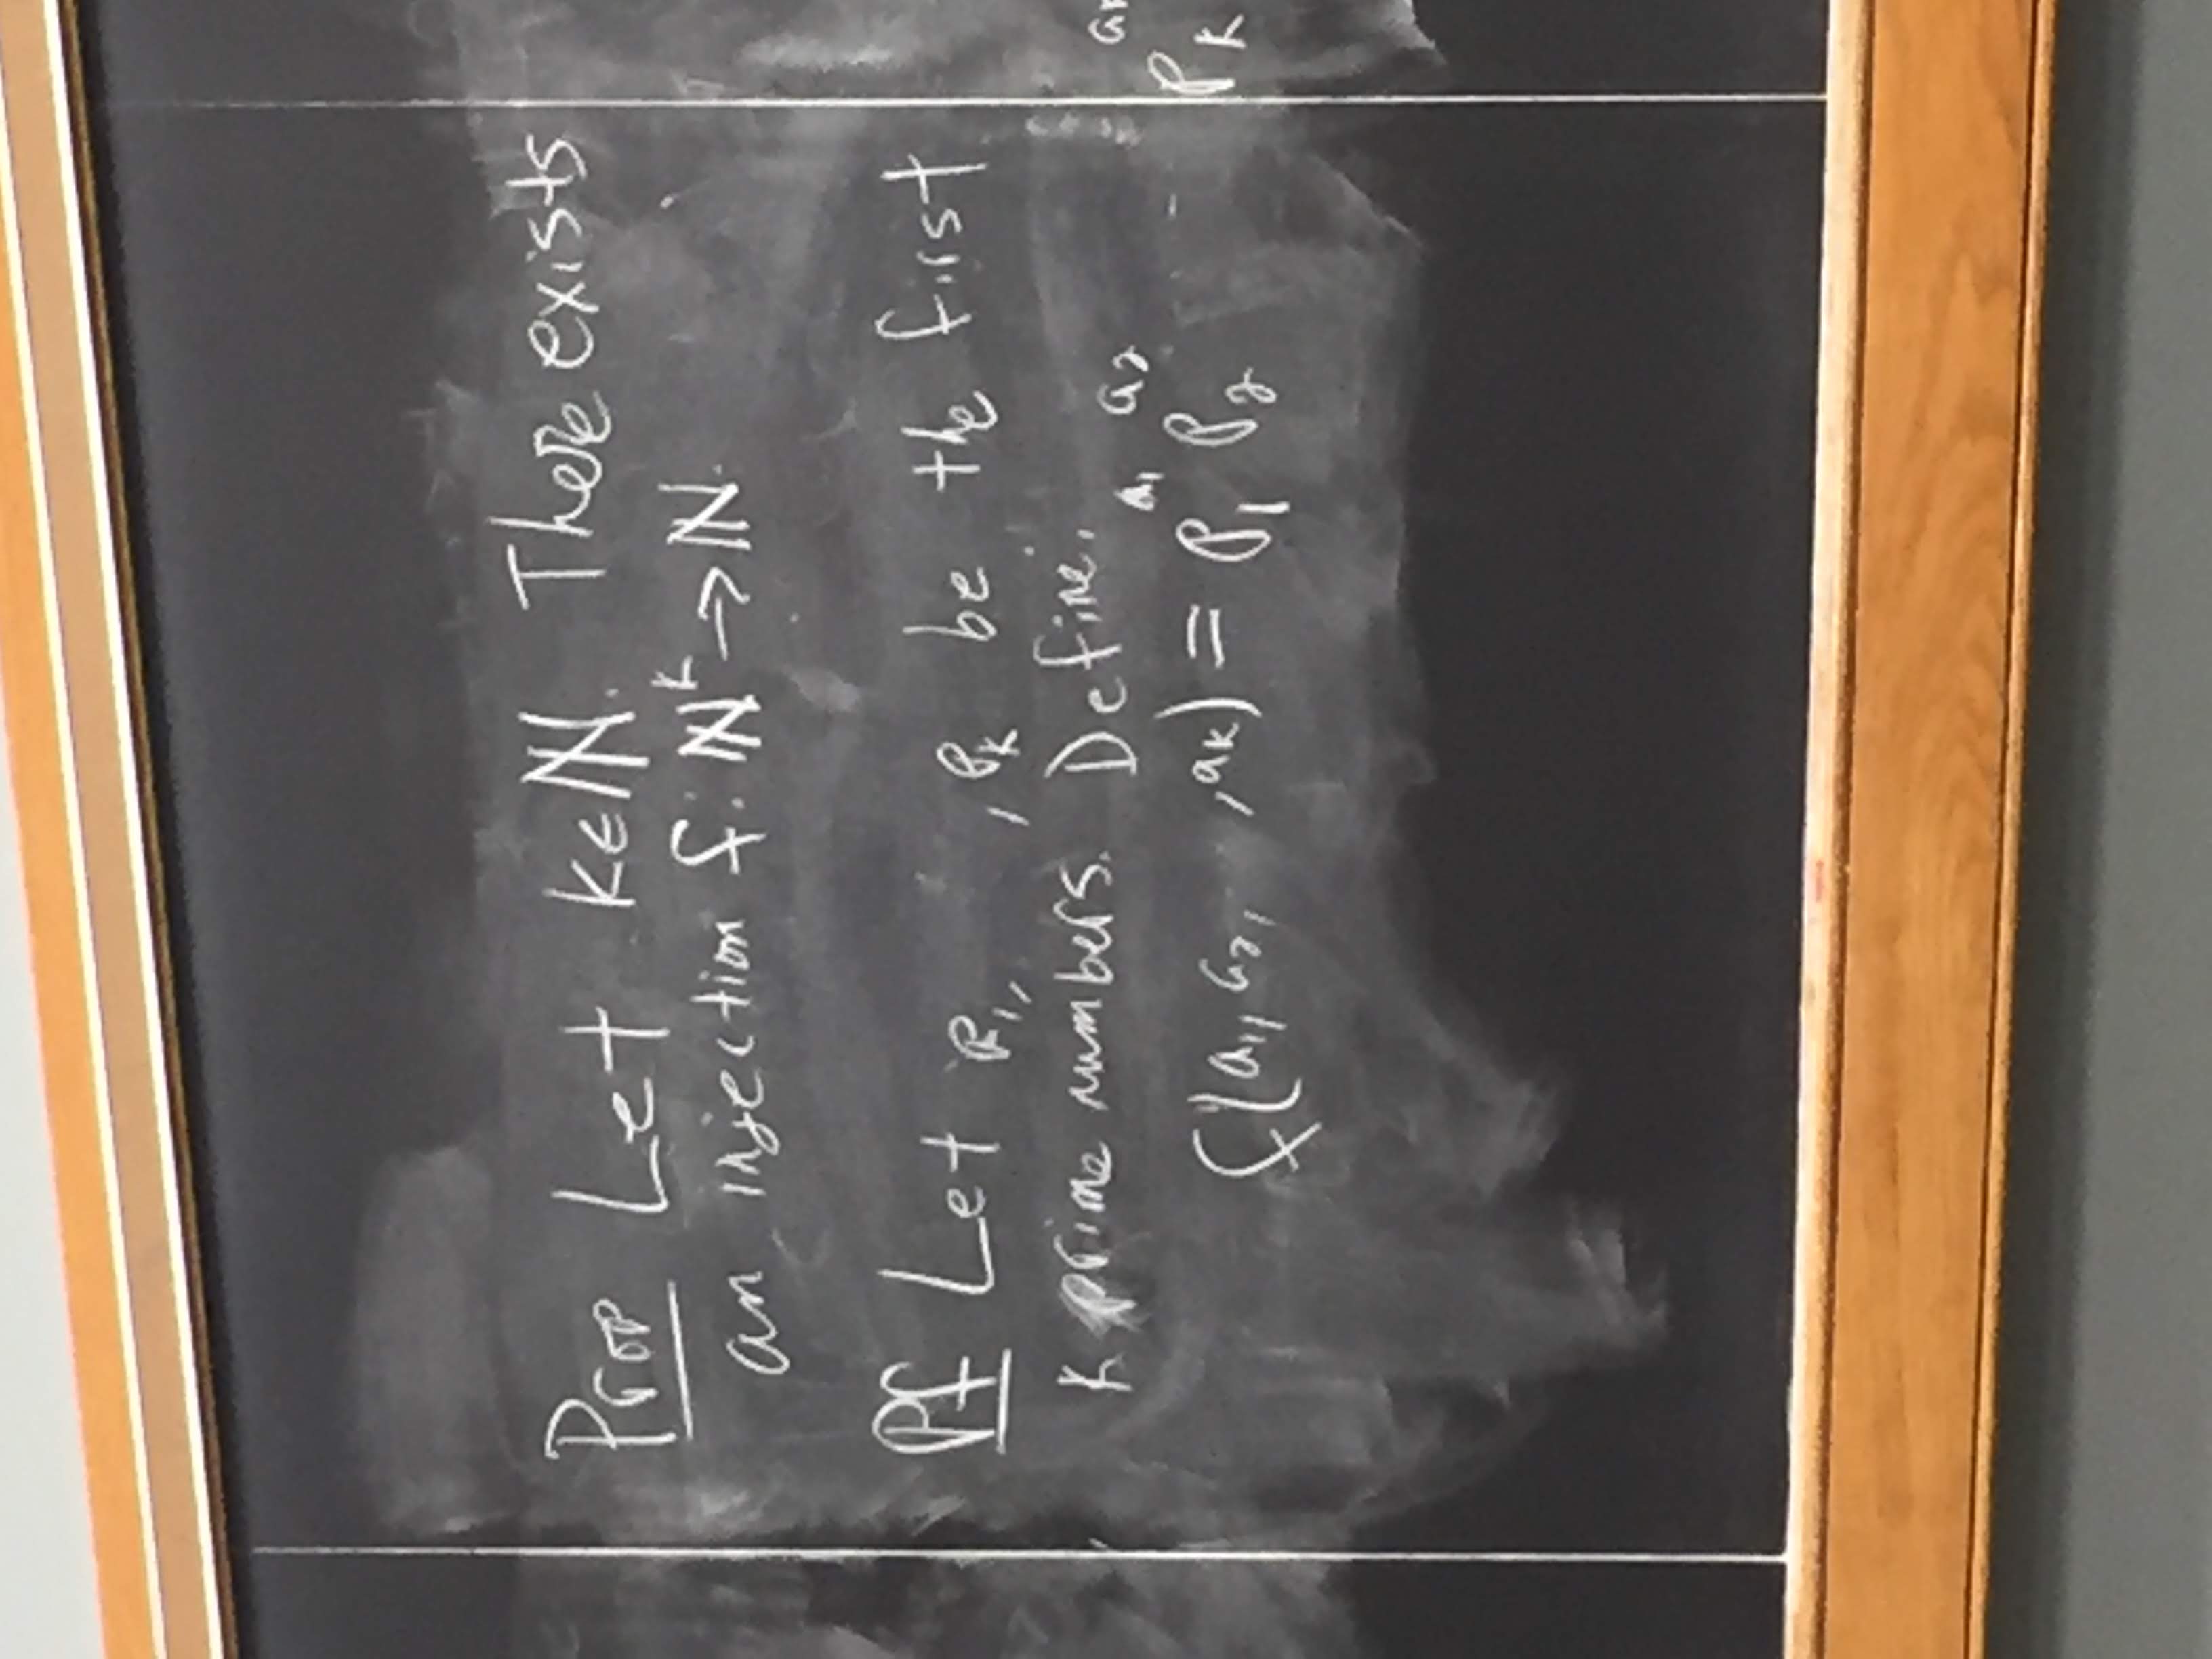 Prop Let k∈ℕ. There exists
an injection f: ℕ^k → ℕ.
Pf Let p₁, , p_k be the first
k prime numbers. Define.
f(a₁, a₂, , a_k) = p₁^a₁ p₂^a₂ p_k